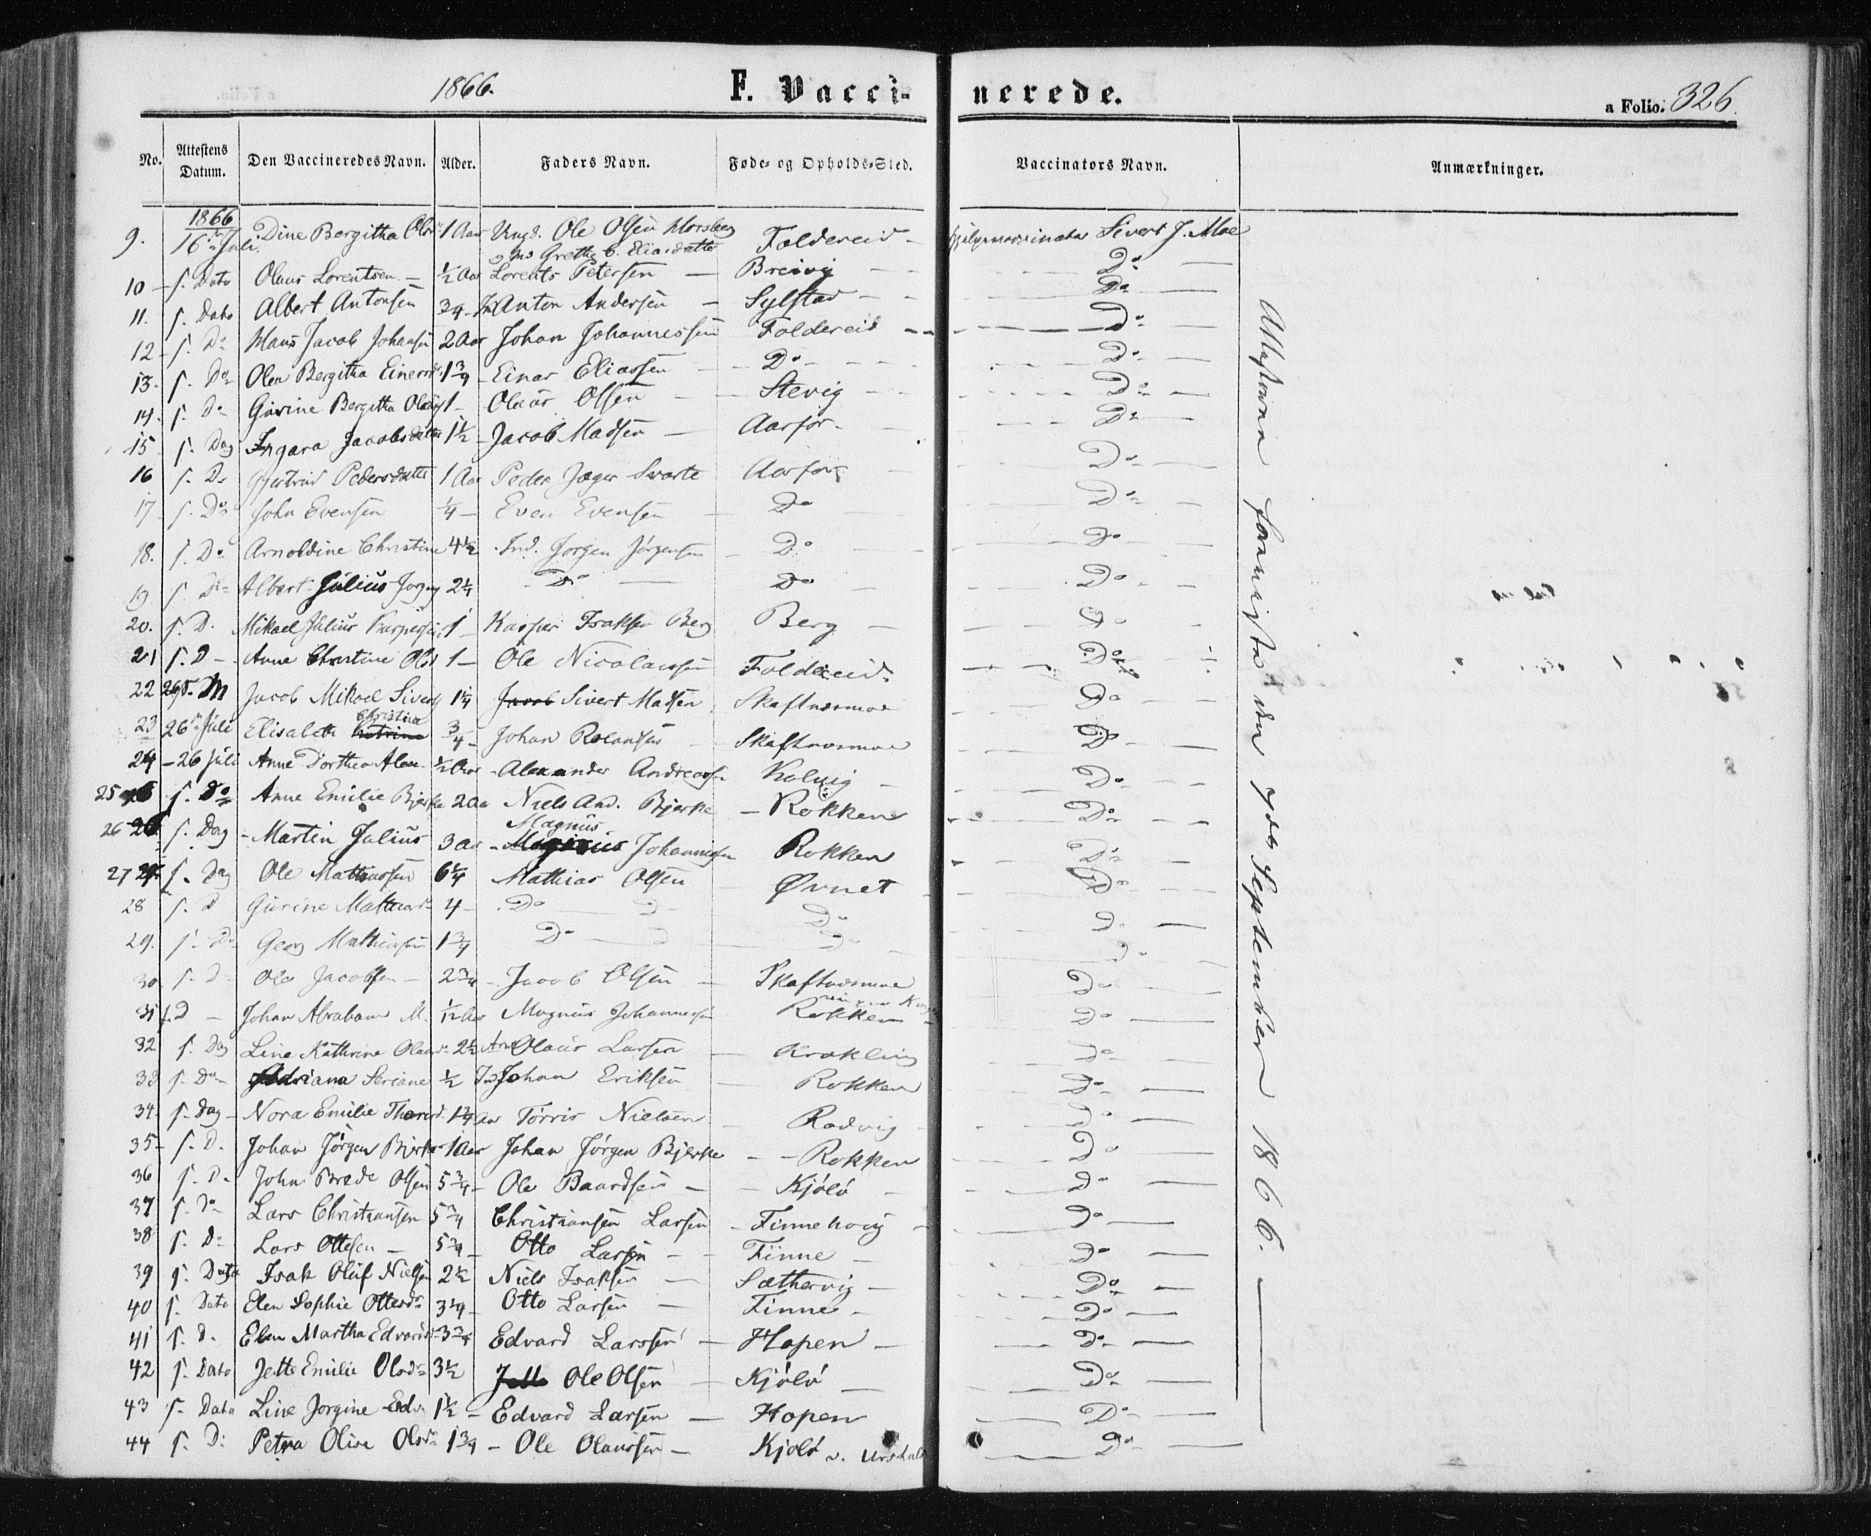 1866. F. Vacci- nerede. a Folio. 326.
No. Attestens Datum. Den Vaccineredes Navn. Alder. Faders Navn. Føde- og Opholds-Sted. Vaccinators Navn. Anmærkninger.
1866
9. 16de Juli. Dine Bergitha Olsd 1 Aar Ungd. Ole Olsen Foldereid - Sivert J. Moe
Grethe C. Eliasdatter
10 - s. Dato Olaus Lorentsen - ½ Aar Lorents Petersen - Breivig - Do
11. s. Dato Albert Antonsen 3/4 - Anton Andersen - Sylstad - Do
12 - s. Do Hans Jacob Johansen 2 Aar Johan Johannessen Foldereid - Do
13. s. Do Olea Bergitha Einersd 1 3/4 - Einar Eliassen - Do - Do
14. s. Do Gurine Bergitha Olausd 1 - Olaus Olsen - Stevig - Do
15 s. Dag Ingara Jacobsdatter 1½ - Jacob Madsen - Aarfor - Do
16 s. Do Gjertrud Pedersdatter 1 Aar Peder Jæger Svarte Aarfor - Do
17 s. Do John Evensen ¼ - Even Evensen - Do Do
18. s. Do Arnoldine Christine 4½ Ind. Jørgen Jørgensen - Do - Do
19. s. Do Albert Julius Jørgens 2¼ Do - Do - Do
20. s. D. Mikael Julius Kaspersen 1 - Kasper Isaksen Berg Berg - Do
21 s. D - Anne Christine Olsd 1 - Ole Nicolaisen Foldereid. Do
22 s. M Jacob Mikael Sivertsen 1¼ Jacob Sivert Madsen Skaftnesmoe Do
Christina
23 26de Juli Elisabeth Katrina 3/4 - Johan Rolandsen - Skaftnesmoe Do
24 - 26 Juli Anne Dorthea Alex. ½ Aar - Alexander Andreassen Kolvig - Do
25 s. Do Anne Emilie Bjerke 2 Aar Niels And. Bjerke - Rokken Do
Magnus
26 26 s. Dag - Martin Julius 3 Aar - Johannessen Rokken Do
27 s. Dag Ole Mathiassen 6¼ Mathias Olsen - Øvnet - Do
28 s. D Gurine Mathiasd 4 - Do - Do Do
29. s. Do Georg Mathiassen 1 3/4 Do - Do Do
30 s. D - Ole Jacobsen - 2 3/4 - Jacob Olsen - Skaftnesmoe Do
31 s. D - Johan Abraham M. 1/12 Aar Magnus Johannessen Rokken Do
32 s. Dag Line Kathrine Olausd 2½ Olaus Larsen - Krækling Do
33 s. Do Adriana Seriane ½ Johan Eriksen - Rokken Do
34. s. Dag - Nora Emilie 1¼ Aar Torris Nielsen - Rodvig Do
35 - s. D. Johan Jørgen Bjerke 1 Aar Johan Jørgen Bjerke - Rokken Do
36 s. D. John Brede Olsen 5 3/4 - Ole Baardsen - Kjølø - Do
37 s. Do Lars Christiansen 5 3/4 Christiansen Larsen - Finnehovg - Do
38 s. Do Lars Ottesen - 5 3/4 - Otto Larsen - Finne - Do
39 s. Dato Isak Oluf Nielsen 2½ Niels Isaksen - Sæthervig - Do
40 s. Dato Elen Sophie Ottesdr 3¼ - Otto Larsen - Finne - Do
41 s. D. Elen Martha Edvards 3 3/4 Edvard Larssen - Hopen - Do
42 s. Dato Jette Emilie Olsdr 3½ Jette Ole Olsen - Kjølø - Do
43 s. Dato Line Jorgine Edv 1½ - Edvard Larsen - Hopen Do
44 s. D: Petra Olive Olsdr 1 3/4 - Ole Olaussen - Kjølø Do
Attesterne foreviste den September 1866.